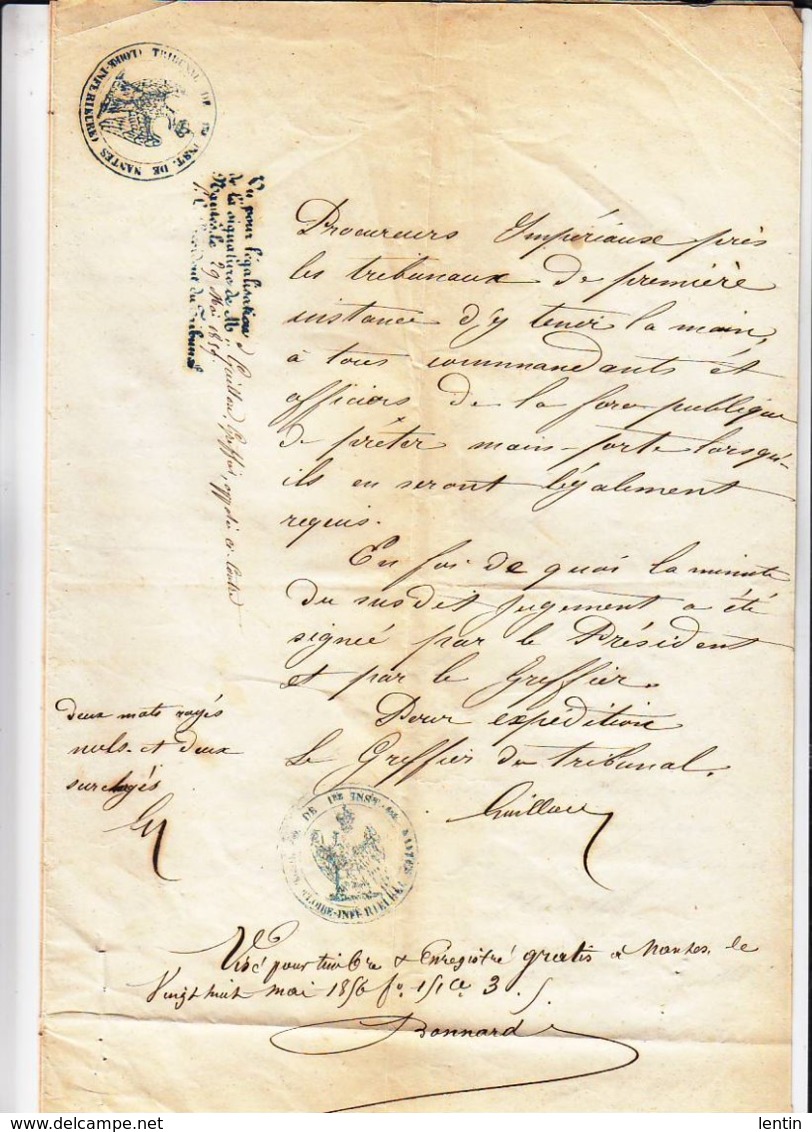 TRIBUNAL DE 1RE INST. DE NANTES (LOIRE-INFÉRIEURE)
Vu pour légalisation
de la signature de M. Guillou, Greffier, apposée ci-contre
Nantes, le 29 Mai 1856.
Président du Tribunal
Procureurs Impériaux près
les tribunaux de première
instance d'y tenir la main,
à tous commandants et
officiers de la force publique
de prêter main-forte lorsqu'-
ils en seront légalement
requis.
En foi de quoi la minute
du susdit jugement a été
signée par le Président
et par le Greffier.
Pour expédition
Le Greffier du tribunal.
Guillou
deux mots rayés
nuls et deux
surchargés
DE 1RE INST. DE NANTES (LOIRE-INFÉRIEURE)
Visé pour timbre & Enregistré gratis à Nantes le
Vingt huit mai 1856 fo. 151 ce 3.
Bonnard
lentin